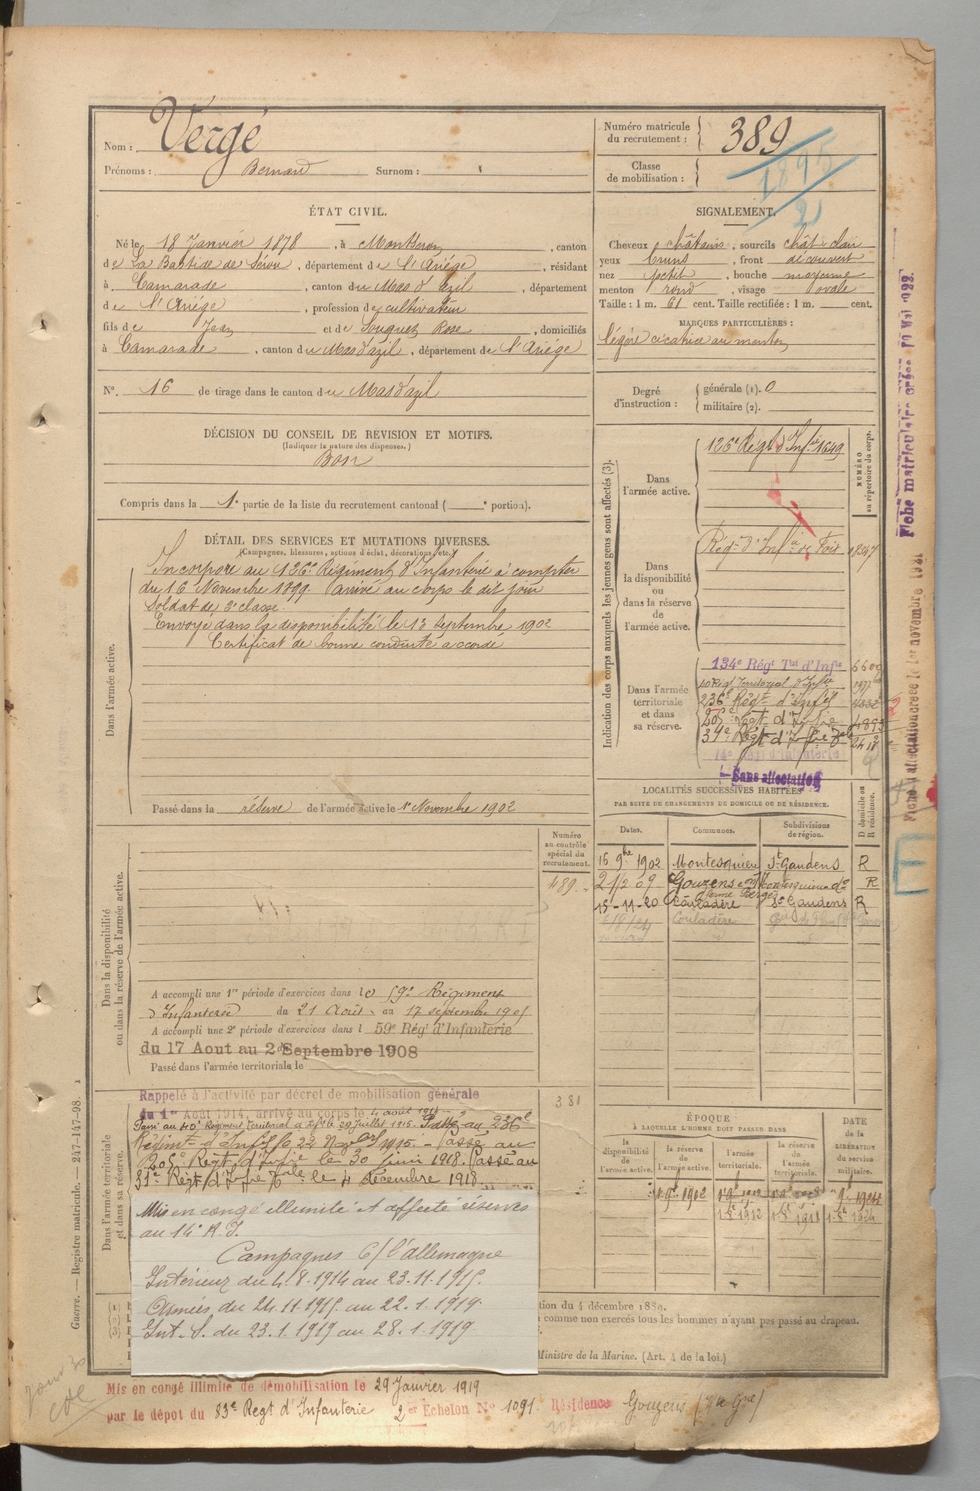 Nom : Vergé
Prénoms : Bernard Surnom :
Numéro matricule du recrutement : 389
Classe de mobilisation : 1895
ÉTAT CIVIL.
Né le 18 Janvier 1878, à Montseron, canton
de La Bastide de Sérou, département de l'Ariège, résidant
à Camarade, canton du Mas d'Azil, département
de l'Ariège, profession de cultivateur
fils de Jean et de Souquet Rose, domiciliés
à Camarade, canton du Mas d'azil, département de l'Ariège
N°. 16 de tirage dans le canton du Mas d'azil
SIGNALEMENT.
Cheveux châtains, sourcils chât. clair
yeux bruns, front découvert
nez petit, bouche moyenne
menton rond, visage ovale
Taille : 1 m. 61 cent. Taille rectifiée : 1 m. cent.
MARQUES PARTICULIÈRES :
légère cicatrice au menton
Degré d'instruction : générale (1). 0
militaire (2).
DÉCISION DU CONSEIL DE REVISION ET MOTIFS.
(Indiquer la nature des dispenses.)
Bon
Compris dans la 1e partie de la liste du recrutement cantonal ( e portion).
DÉTAIL DES SERVICES ET MUTATIONS DIVERSES.
(Campagnes, blessures, actions d'éclat, décorations, etc.)
Dans l'armée active.
Incorporé au 126e Régiment d'Infanterie à compter
du 16 Novembre 1899. Arrivé au corps le dit jour
Soldat de 2e classe.
Envoyé dans la disponibilité le 13 septembre 1902
Certificat de bonne conduite accordé
Passé dans la réserve de l'armée active le 1er Novembre 1902
Indication des corps auxquels les jeunes gens sont affectés (3).
NUMÉRO au répertoire du corps.
Dans l'armée active.
126e Régt d'Infie 1649
Dans la disponibilité ou dans la réserve de l'armée active.
Régt d'Infie de Foix
Dans l'armée territoriale et dans sa réserve.
134e Régt Tal d'Infie
236e Régt d'Infie
205e Régt d'Infie 4893
Sans affectation
LOCALITÉS SUCCESSIVES HABITÉES
PAR SUITE DE CHANGEMENTS DE DOMICILE OU DE RÉSIDENCE.
Dates. Communes. Subdivisions de région. D domicile ou R résidence.
16 9bre 1902 Montesquieu St Gaudens R
21/2 09 Gouzens R
15-11-20 Couladère St Gaudens R
Couladère
Numéro au contrôle spécial du recrutement.
489
Dans la disponibilité ou dans la réserve de l'armée active.
A accompli une 1re période d'exercices dans le 59e Régiment
d'Infanterie du 21 Août au 17 septembre 1905
A accompli une 2e période d'exercices dans l 59e Régt d'Infanterie
du 17 Aout au 2 Septembre 1908
Passé dans l'armée territoriale le
381
Dans l'armée territoriale et dans sa réserve.
Rappelé à l'activité par décret de mobilisation générale
du 1er Août 1914, arrivé au corps le 4 août 1914
Passé au 40e Régiment Territorial d'Infie le 29 juillet 1915. Passé au 236e
Régimt d'Infie le 22 Nov 1915. Passé au
205e Régt d'Infie le 30 juin 1918. Passé au
Régt d'Infie le 4 décembre 1918
Mis en congé illimité et affecté réserves
au 14e R.I.
Campagnes C/ l'allemagne
Intérieur du 4.8.1914 au 23.11.1915.
Armées du 24.11.1915 au 22.1.1919.
Int. S. du 23.1.1919 au 28.1.1919
ÉPOQUE
À LAQUELLE L'HOMME DOIT PASSER DANS
la disponibilité de l'armée active. la réserve de l'armée active. l'armée territoriale. la réserve de l'armée territoriale.
DATE de la LIBÉRATION du service militaire.
1er 9bre 1902
tion du 4 décembre 1889.
comme non exercés tous les hommes n'ayant pas passé au drapeau.
Ministre de la Marine. (Art. 4 de la loi.)
Mis en congé illimité de démobilisation le 29 Janvier 1919
par le dépot du 83e Regt d'Infanterie 2er Echelon N° 1091. Résidence Gouzens (Hte Gne)
Guerre. — Registre matricule. — 247-147-98.
Fiche matriculaire créée 10 Mai 1922.
Fiche d'affectation créée le 1er novembre
E